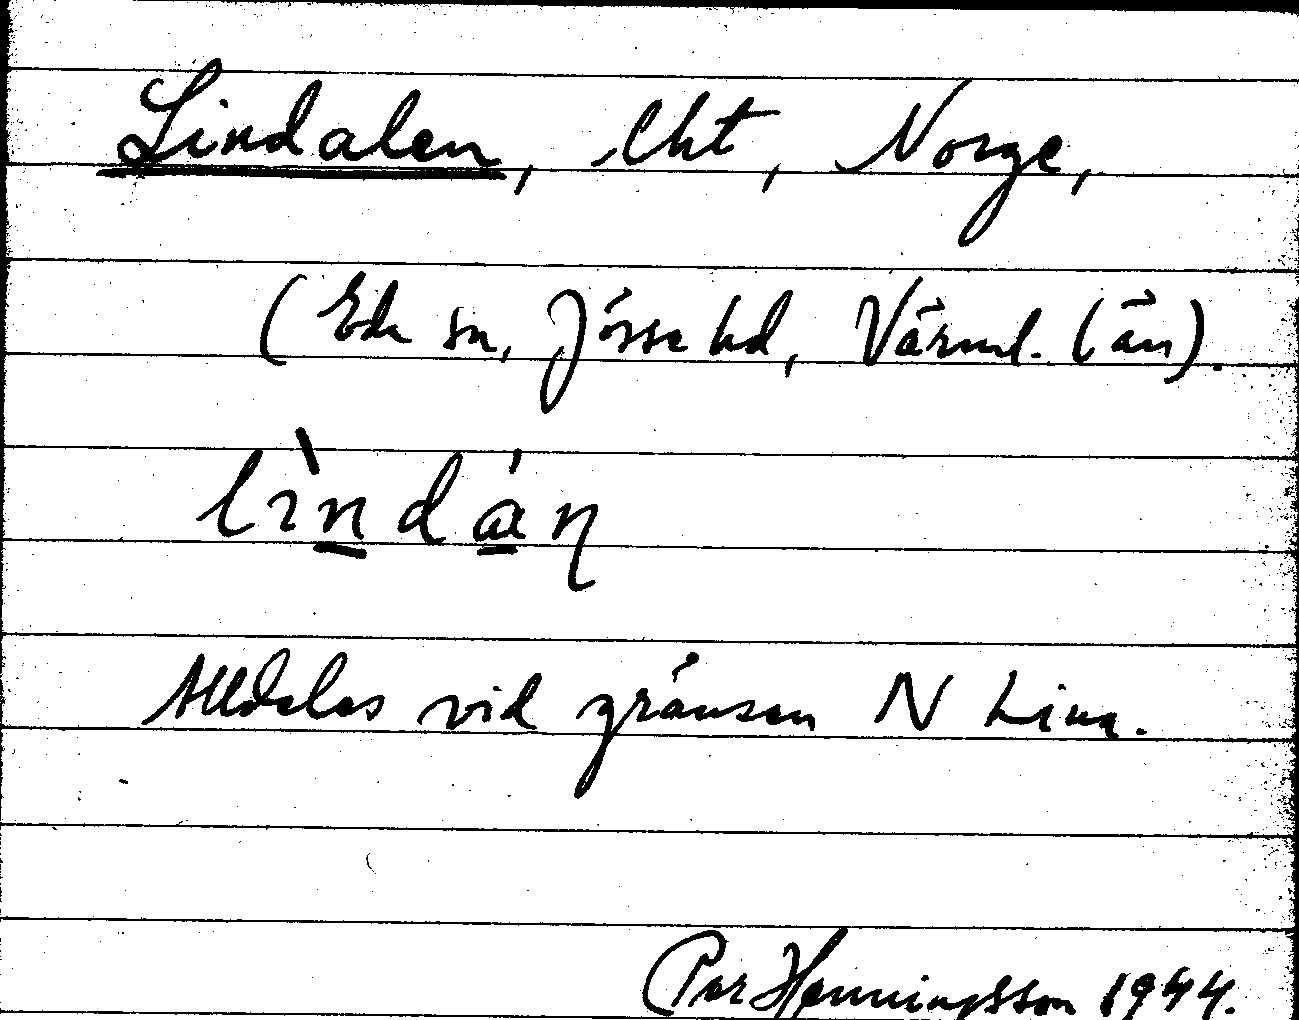 Lindalen, lht, Norge,
(Eda sn, Jösse hd, Värml. län).
lìndán
Alldeles vid gränsen N Lina.
Per Henningsson 1944.